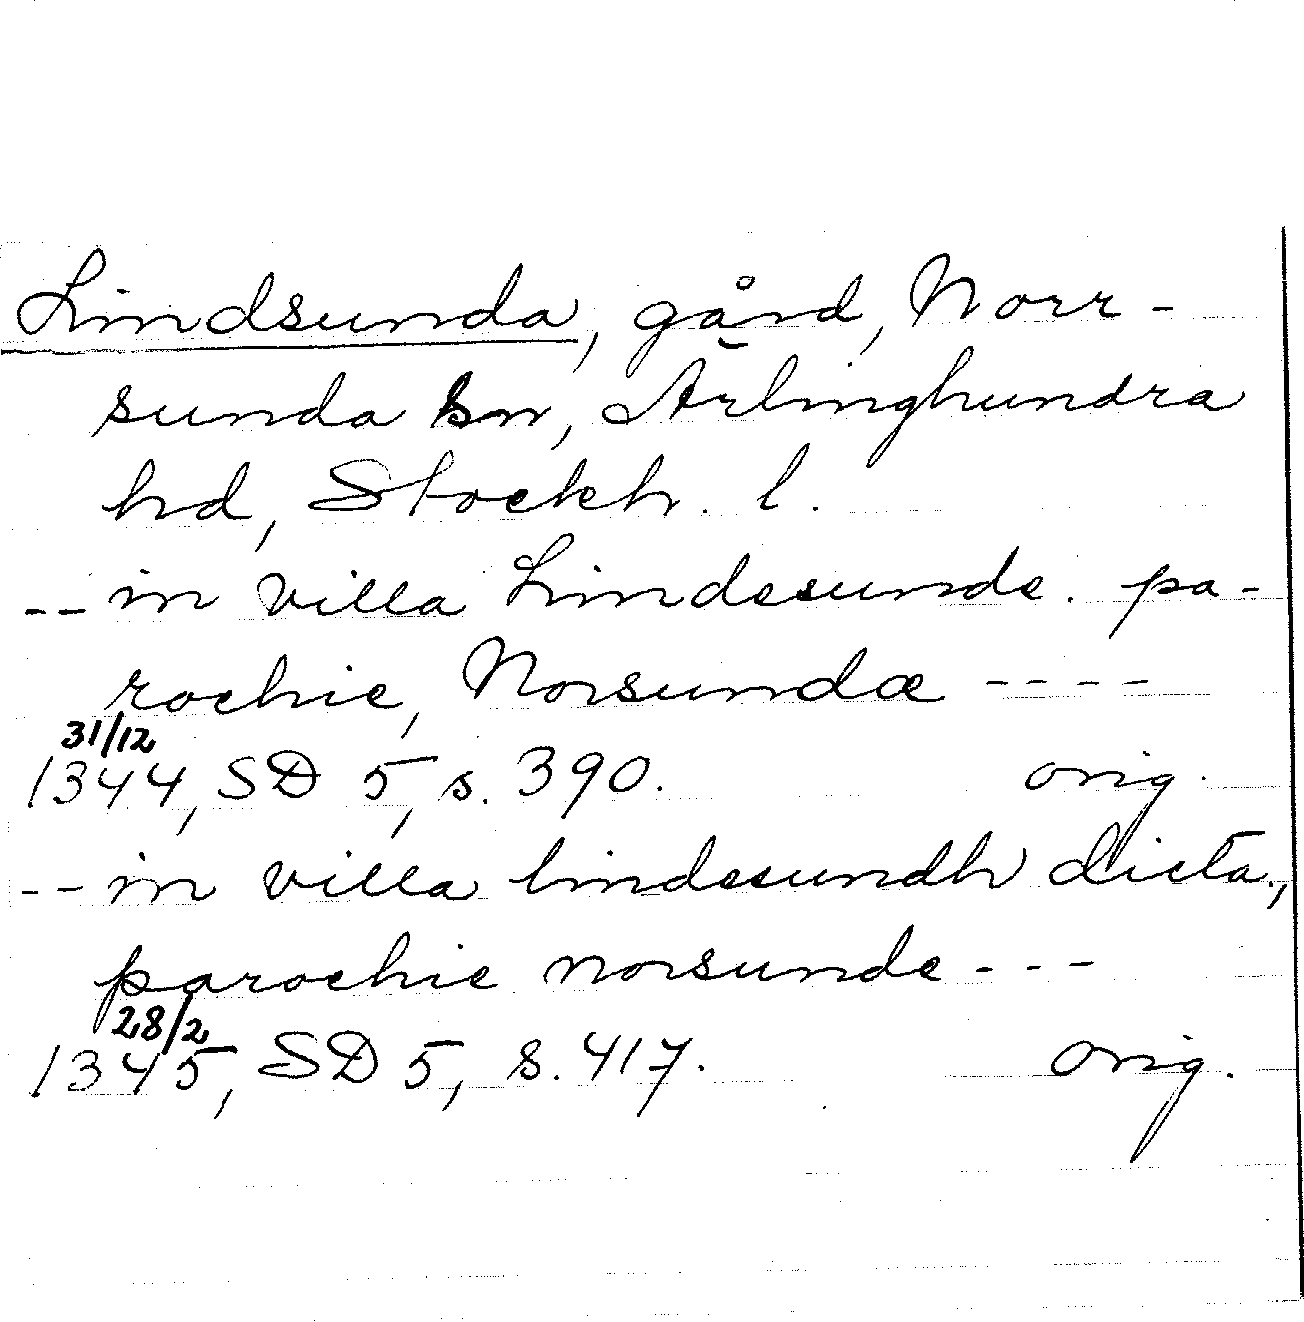 Lindsunda, gård, Norr-
sunda sn, Ärlinghundra
hd, Stockh. l.
-- in villa Lindesunde. pa-
rochie, Norsundæ ----
31/12
1344, SD 5, s. 390. orig.
-- in villa lindesundh dicta,
parochie norsunde ---
28/2
1345, SD 5, s. 417. orig.